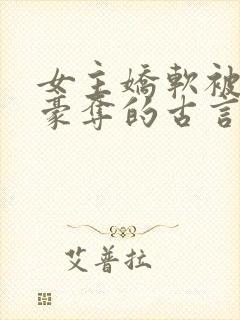 女主嬌軟被
豪奪的古言
艾普拉